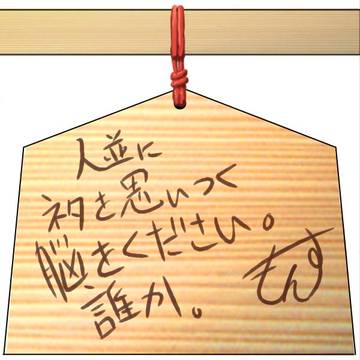 人並に
ネタを思いつく
脳をください。
誰か。
もんす